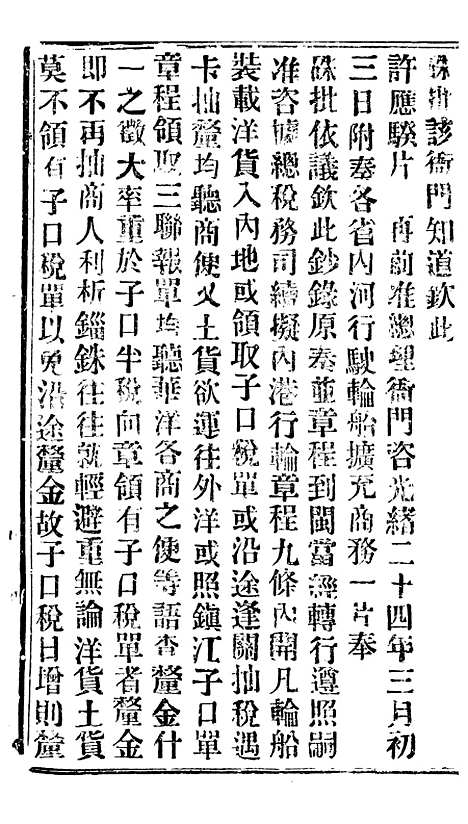 硃批該衙門知道欽此
許應騤片　再前准總理衙門咨光緒二十四年三月初
三日附奏各省內河行駛輪船擴充商務一片奉
硃批依議欽此鈔錄原奏並章程到閩當經轉行遵照嗣
准咨據總稅務司續擬內港行輪章程九條內開凡輪船
裝載洋貨入內地或領取子口稅單或沿途逢關抽稅遇
卡抽釐均聽商便又土貨欲運往外洋或照鎮江子口單
章程領取三聯報單均聽華洋各商之便等語查釐金什
一之徵大率重於子口半稅向章領有子口稅單者釐金
即不再抽商人利析錙銖往往就輕避重無論洋貨土貨
莫不領有子口稅單以免沿途釐金故子口稅日增則釐